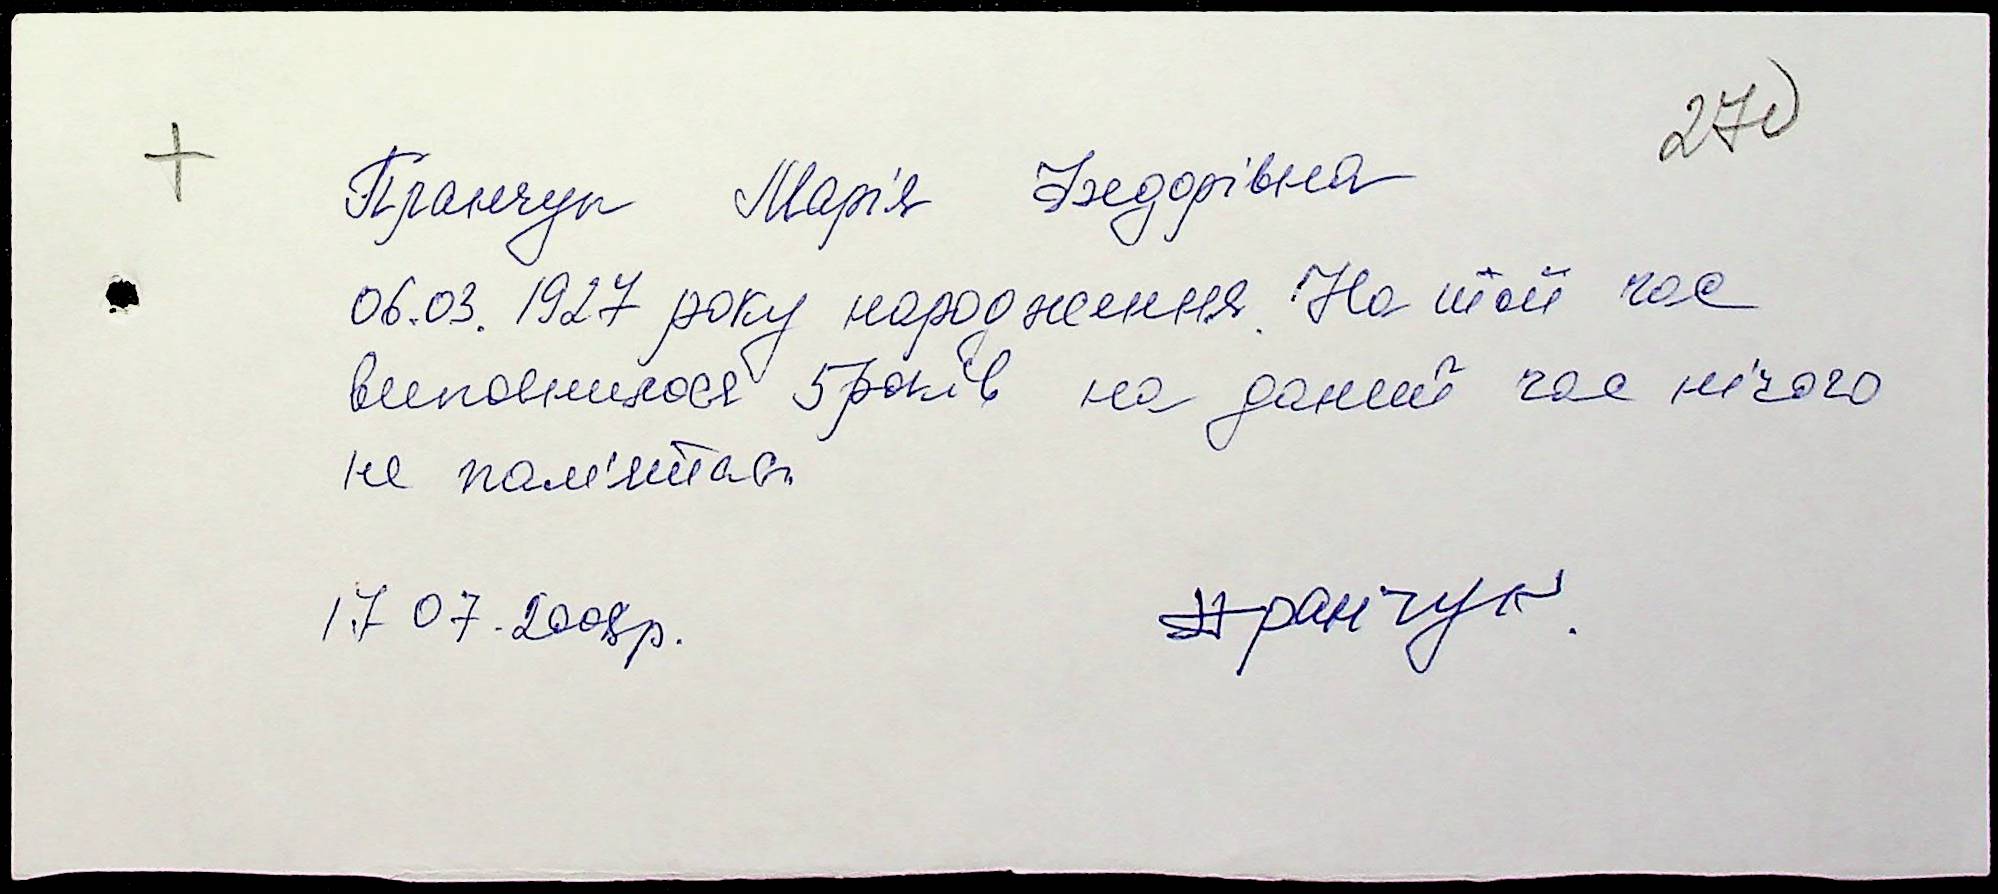 +
27)
Пранчук Марія Федорівна
06.03. 1927 року народження. На той час
виповнилося 5 років на даний час нічого
не пам'ятає.
17 07. 2008р.
Пранчук.